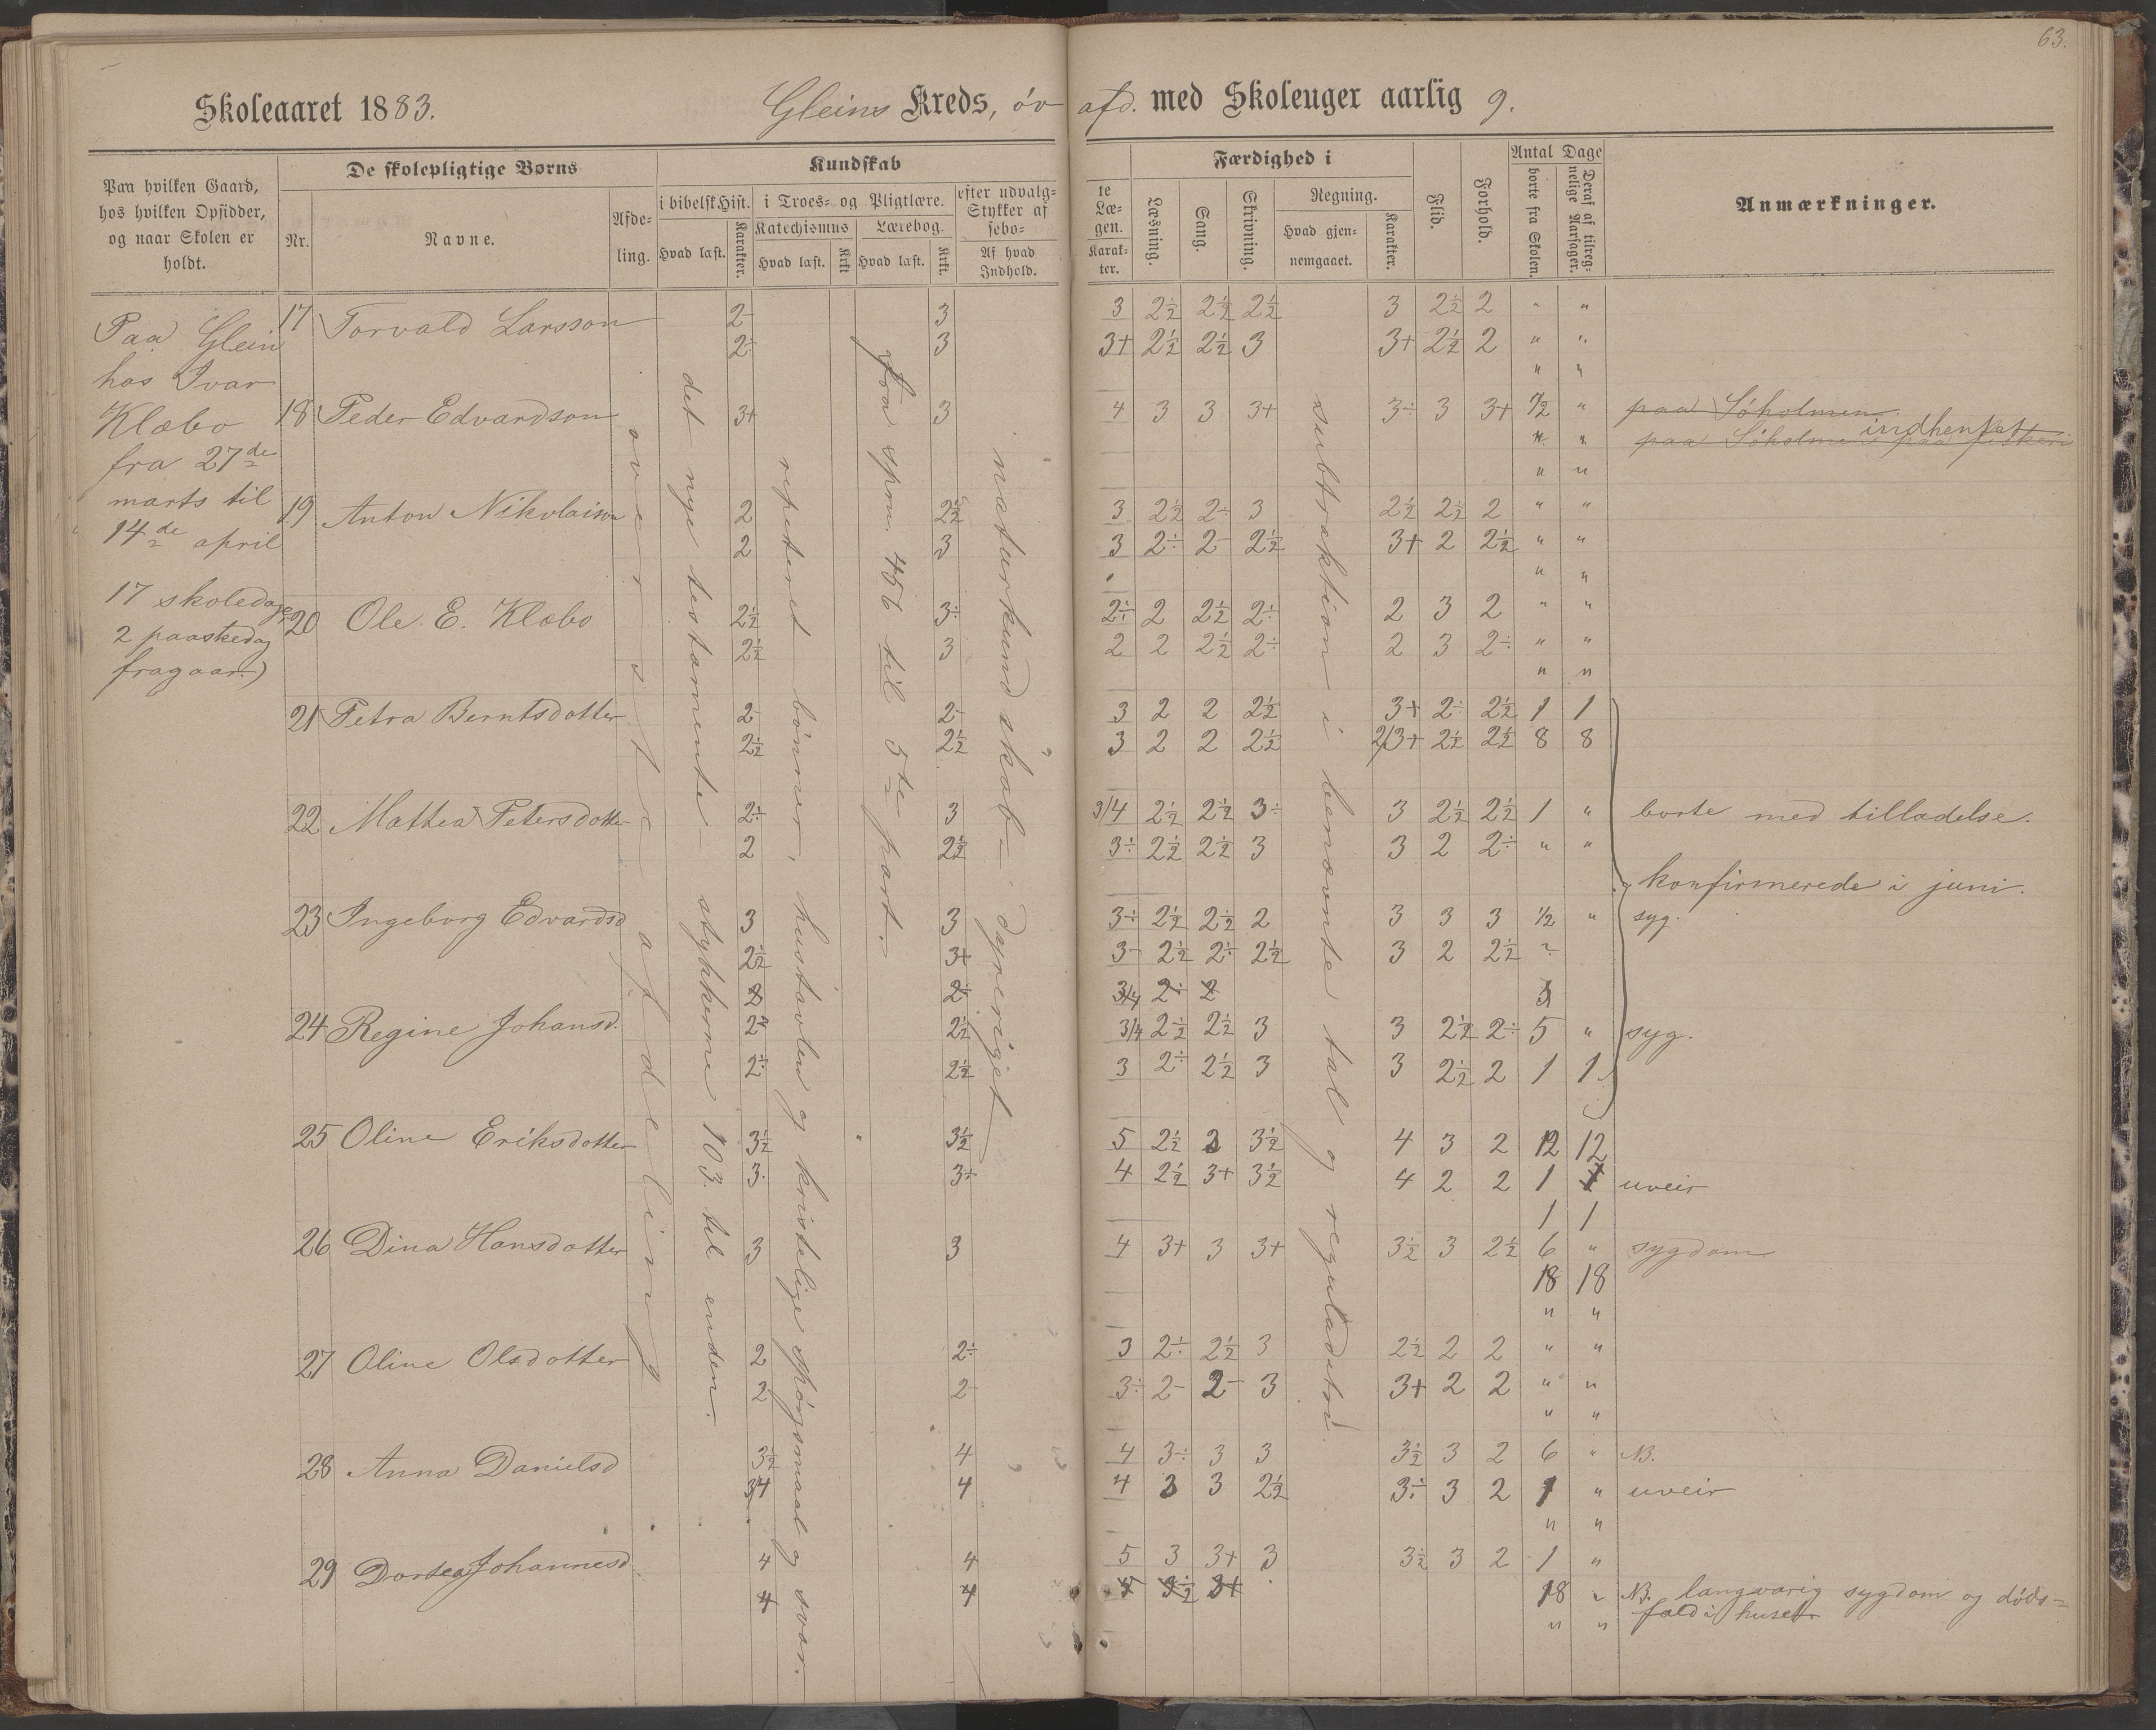 63.
Skoleaaret 1883. Gleins Kreds, öv afd. med Skoleuger aarlig 9.
Paa hvilken Gaard, hos hvilken Opsidder, og naar Skolen er holdt.
De skolepligtige Børns
Nr. Navne. Afdeling.
Kundskab
i bibelsk Hist. Hvad læst. Karakter.
i Troes- og Pligtlære.
Katechismus Hvad læst. Krkt.
Lærebog. Hvad læst. Krkt.
efter udvalg- Stykker af sebo- Af hvad Indhold.
te Læ- gen. Karak- ter.
Færdighed i
Læsning. Sang. Skrivning.
Regning. Hvad gjen- nemgaaet. Karakter.
Flid. Forhold.
Antal Dage
borte fra Skolen. Deraf af tilreg- nelige Aarsager.
Anmærkninger.
Paa Glein
hos Ivar
Klæbo
fra 27de
marts til
14de april
17 skoledage
2 paaskedag
fragaar.)
overste afdeling
det nye testamente stykkerne 103 til enden.
repeteret bönner, hustavlen og kristelige spörgsmaal og svar.
fra spm. 456 til 5te part.
naturkundskab - dyreriget
subtraktion i benævnte tal og reguladetri
17 Torvald Larsson 2- 3 3 2½ 2½ 2½ 3 2½ 2 " "
2÷ 3 3+ 2½ 2½ 3 3+ 2½ 2 " "
" "
18 Peder Edvardson 3+ 3 4 3 3 3+ 3÷ 3 3+ ½ " paa Söholmen.
" " paa Söholmen paa fiskeri indhentet
" "
19 Anton Nikolaison 2 2½ 3 2½ 2÷ 3 2½ 2½ 2 " "
2 3 3 2÷ 2- 2½ 3+ 2 2½ " "
" "
20 Ole E. Klæbo 2½ 3÷ 2÷ 2 2½ 2÷ 2 3 2 " "
2½ 3 2 2 2½ 2÷ 2 3 2÷ " "
" "
21 Petra Berntsdotter 2- 2- 3 2 2 2½ 3+ 2÷ 2½ 1 1
2½ 2½ 3 2 2 2½ 2/3+ 2½ 2½ 8 8
22 Mathea Petersdotter 2÷ 3 3/4 2½ 2½ 3÷ 3 2½ 2½ 1 " borte med tilladelse.
2 2½ 3÷ 2½ 2½ 3 3 2 2÷ " "
konfirmerede i juni.
23 Ingeborg Edvardsd 3 3 3÷ 2½ 2½ 2 3 3 3 ½ " syg.
2½ 3+ 3- 2½ 2÷ 2½ 3 2 2½ "
2 2÷ 3/4 2÷ 2 3
24 Regine Johansd. 2÷ 2½ 3/4 2½ 2½ 3 3 2½ 2÷ 5 " syg.
2÷ 2½ 3 2÷ 2½ 3 3 2½ 2 1 1
25 Oline Eriksdotter 3½ 3½ 5 2½ 3 3½ 4 3 2 12 12
3 3÷ 4 2½ 3+ 3½ 4 2 2 1 1 uveir
1 1
26 Dina Hansdotter 3 3 4 3+ 3 3+ 3½ 3 2½ 6 " sygdom
18 18
" "
27 Oline Olsdotter 2 2÷ 3 2÷ 2½ 3 2½ 2 2 " "
2 2- 3÷ 2- 2- 3 3+ 2 2 " "
" "
28 Anna Danielsd 3½ 4 4 3÷ 3 3 3½ 3 2 6 " NB.
34 4 4 3 3 2½ 3÷ 3 2 1 " uveir
" "
29 Dortea Johannesd 4 4 5 3 3+ 3 3½ 3 2 1 "
4 4 4 3½ 3+ 18 " NB. langvarig sygdom og döds-
" " fald i huset